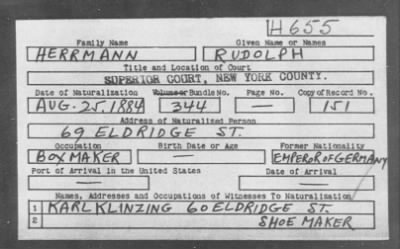 H655
Family Name Given Name or Names
HERRMANN RUDOLPH
Title and Location of Court
SUPERIOR COURT, NEW YORK COUNTY.
Date of Naturalization Volume or Bundle No. Page No. Copy of Record No.
AUG. 25. 1884 344 — 151
Address of Naturalized Person
69 ELDRIDGE ST.
Occupation Birth Date or Age Former Nationality
BOX MAKER — EMPEROR OF GERMANY
Port of Arrival in the United States Date of Arrival
— —
Names, Addresses and Occupations of Witnesses To Naturalization
1 KARL KLINZING 60 ELDRIDGE ST.
2 SHOE MAKER